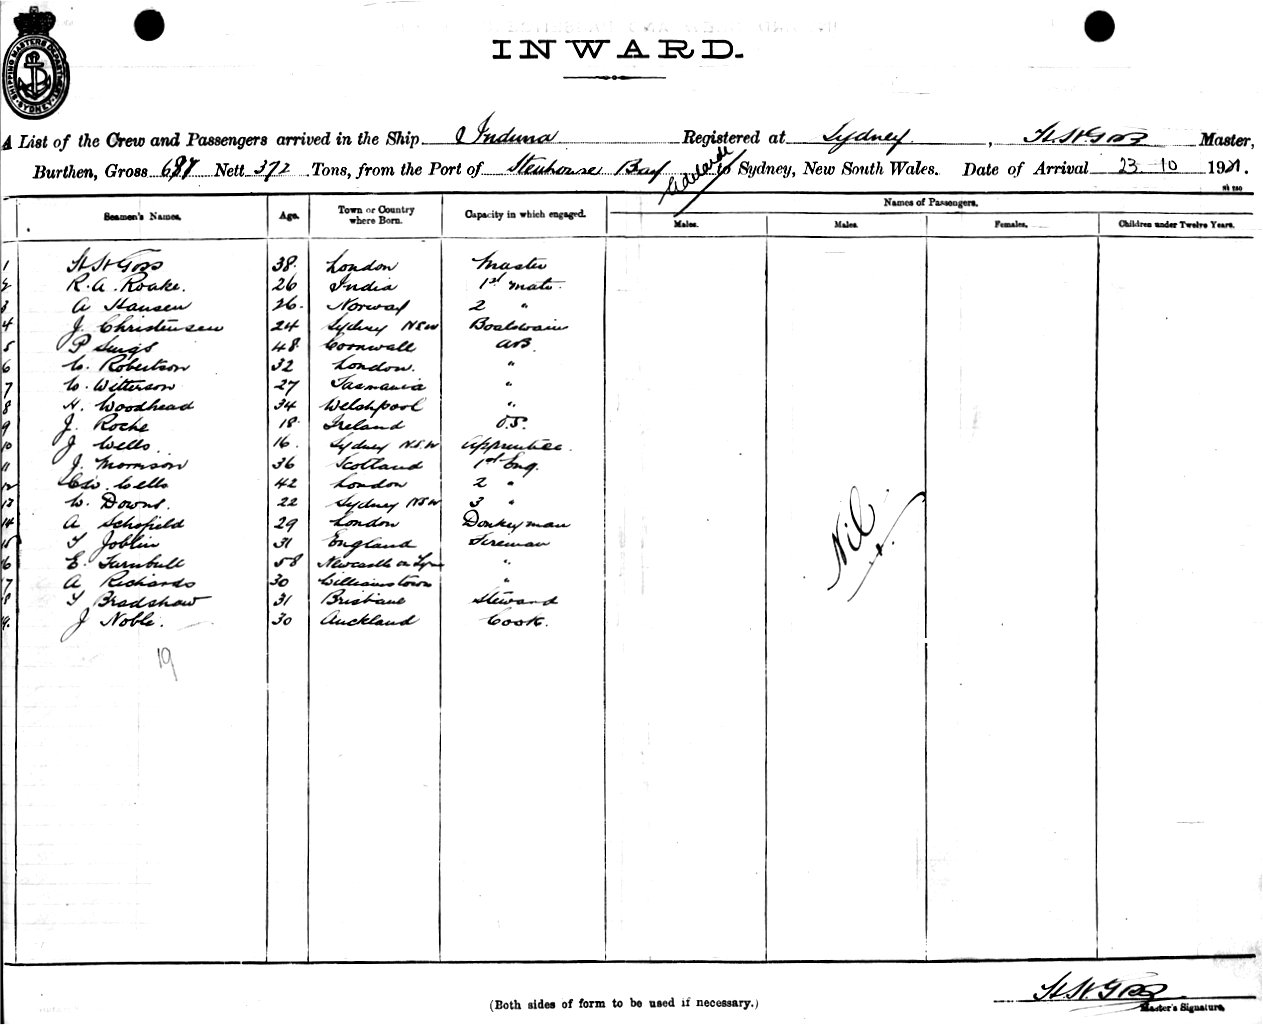 SHIPPING MASTERS DEPARTMENT SYDNEY
INWARD.
A List of the Crew and Passengers arrived in the Ship Induna Registered at Sydney, H.H. Goss Master,
Burthen, Gross 687 Nett 372 Tons, from the Port of Stenhouse Bay to Sydney, New South Wales. Date of Arrival 23 10 1921.
Seamen's Names. Age. Town or Country where Born. Capacity in which engaged. Names of Passengers.
Males. Males. Females. Children under Twelve Years.
1 H.H. Goss 38. London Master
2 R. A. Roake. 26 India 1st Mate.
3 A Hansen 26. Norway 2 "
4 J. Christensen 24 Sydney NSW Boatswain
5 P 48 Cornwall AB.
6 C. Robertson 32 London. "
7 C. Witterson 27 Tasmania "
8 H. Woodhead 34 Welshpool "
9 J. Roche 18 Ireland O.S.
10 J Wells 16. Sydney N.S.W Apprentice.
11 J. Morrison 36 Scotland 1st Eng.
12 Wells 42 London 2 "
13 W. Downs. 22 Sydney NSW 3 "
14 A Schofield 29 London Donkeyman
15 T Joblin 31 England Fireman
6 E. Turnbull 58 Newcastle on Tyne "
7 A Richards 30 Williamstown "
8 T Bradshaw 31 Brisbane Steward
9. J Noble. 30 Auckland Cook.
Nil
19
(Both sides of form to be used if necessary.)
H.H. Goss
Master's Signature.